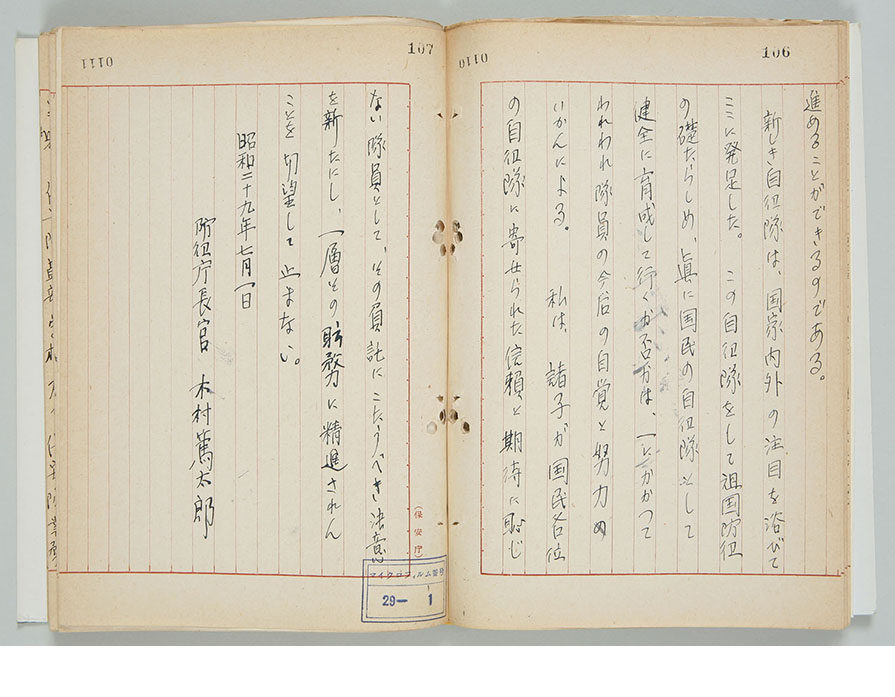 106
0110
進めることができるのである。
新しき自衛隊は、国家内外の注目を浴びて
ここに発足した。この自衛隊をして祖国防衛
の礎たらしめ、真に国民の自衛隊として
健全に育成して行くか否かは、一にかかって
われわれ隊員の今后の自覚と努力の
いかんによる。私は、諸子が国民各位
の自衛隊に寄せられた信頼と期待に恥じ
107
0111
ない隊員として、その負託にこたうべき決意
を新たにし、一層その職務に精進されん
ことを切望して止まない。
昭和二十九年七月一日
防衛庁長官 木村篤太郎
(保安庁)
マイクロフィルム番号
29― 1